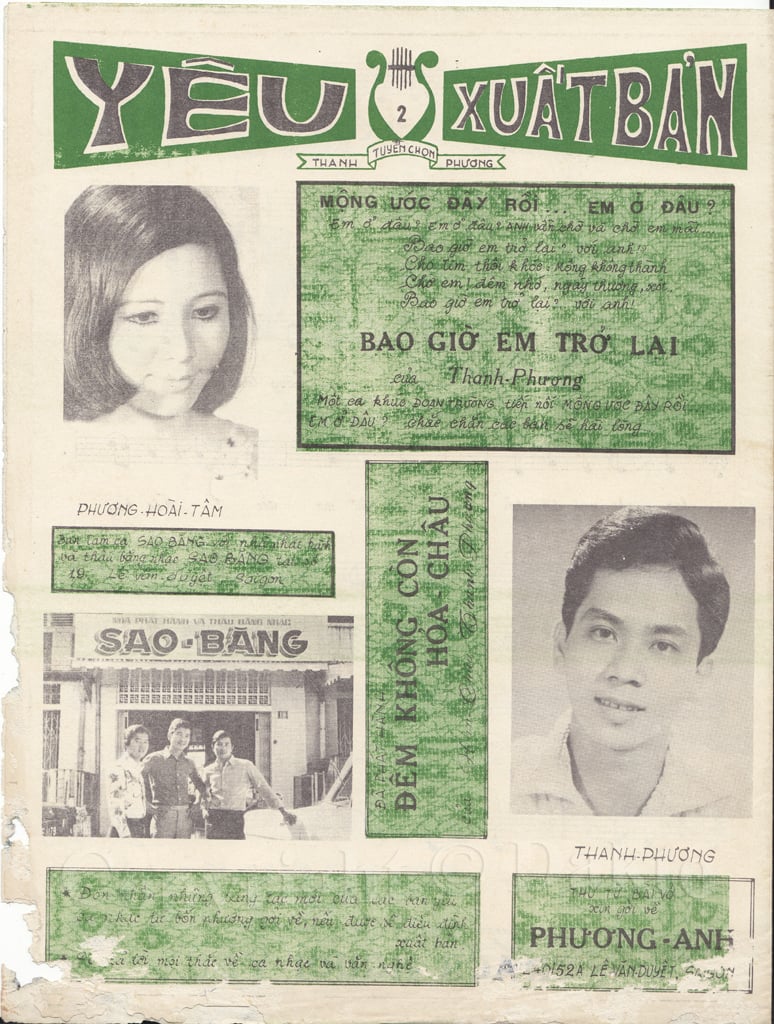 YÊU
2
XUẤT BẢN
THANH TUYỂN CHỌN PHƯƠNG
MÔNG ƯỚC ĐẦY RỒI... EM Ở ĐÂU?
Em ở đâu? Em ở đâu? ANH vẫn chờ và chờ em mãi...
Bao giờ em trở lại? với anh!?
Cho tim thôi khóc, mộng không thành
Cho em! đêm nhớ, ngày thương, xót.
Bao giờ em trở lại? với anh!
BAO GIỜ EM TRỞ LẠI
của Thanh-Phương
Một ca khúc ĐOẠN TRƯỜNG tiếp nối MÔNG ƯỚC ĐẦY RỒI...
EM Ở ĐÂU? Chắc chắn các bạn sẽ hài lòng
PHƯƠNG-HOÀI-TÂM
Ban tam ca SAO BĂNG với nhà phát hành
và thâu băng nhạc SAO BĂNG tại số
19 Lê văn Duyệt Saigon
NHÀ PHÁT HÀNH VÀ THÂU BĂNG NHẠC
SAO-BĂNG
ĐÃ PHÁT HÀNH
ĐÊM KHÔNG CÒN
HỎA-CHÂU
của Thanh Phương
THANH-PHƯƠNG
★ Đón nhận những sáng tác mới của các bạn yêu
ca nhạc từ bốn phương gởi về, nếu được sẽ điều đình
xuất bản
★ lời mọi thắc về ca nhạc và văn nghệ
THƯ TỪ BÀI VỞ
xin gởi về
PHƯƠNG-ANH
152A LÊ-VĂN-DUYỆT, SAIGON